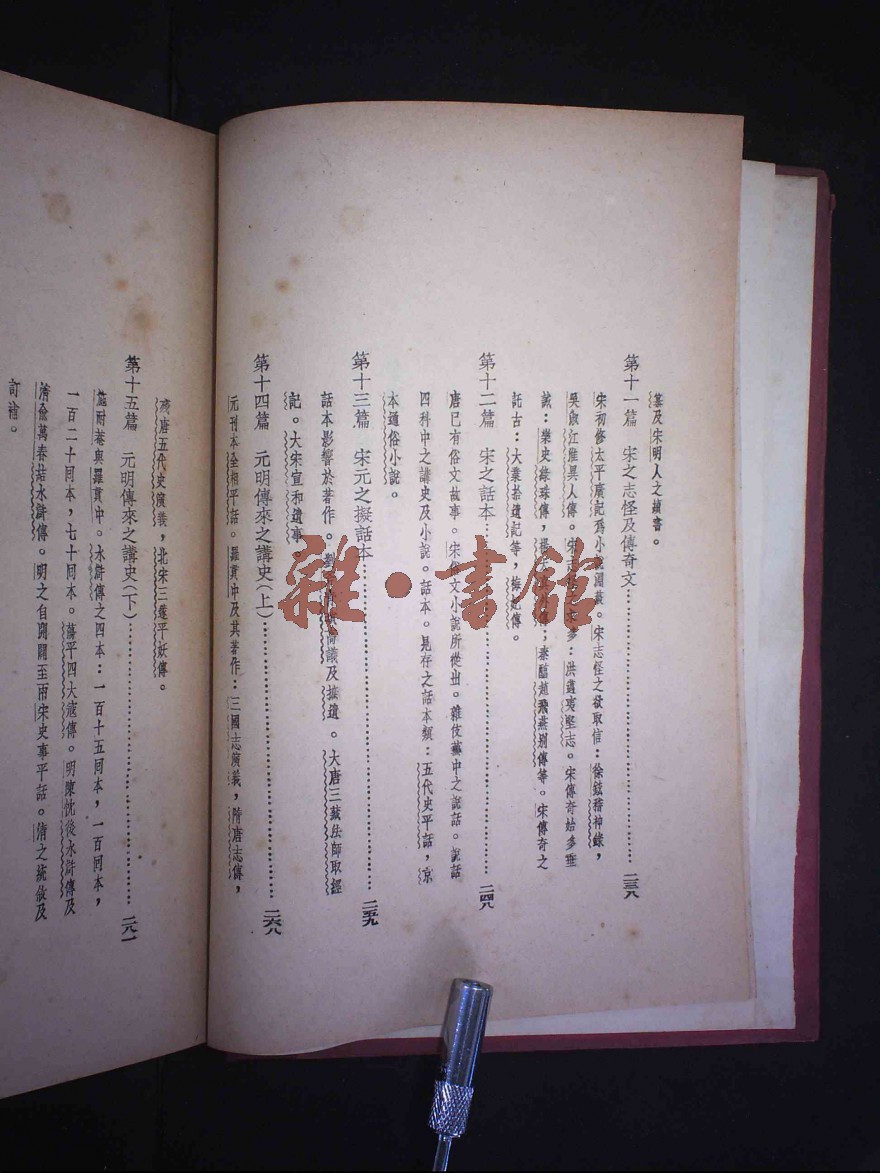 纂及宋明人之續書。
第十一篇 宋之志怪及傳奇文……二三八
宋初修太平廣記爲小說淵藪。宋志怪之欲取信：徐鉉稽神錄，
吳淑江淮異人傳。宋 多：洪邁夷堅志。宋傳奇始多垂
誡：樂史綠珠傳，楊 ；秦醇趙飛燕別傳等。宋傳奇之
託古：大業拾遺記等，梅妃傳。
第十二篇 宋之話本……二四八
唐已有俗文故事。宋俗文小說所從出。雜伎藝中之說話。說話
四科中之講史及小說。話本。見存之話本類：五代史平話，京
本通俗小說。
第十三篇 宋元之擬話本……二五九
話本影響於著作。劉 議及摭遺。大唐三藏法師取經
記。大宋宣和遺事。
第十四篇 元明傳來之講史(上)……二六八
元刊本全相平話。羅貫中及其著作：三國志演義，隋唐志傳，
殘唐五代史演義，北宋三遂平妖傳。
第十五篇 元明傳來之講史(下)……二八一
施耐菴與羅貫中。水滸傳之四本：一百十五回本，一百回本，
一百二十回本，七十回本。蕩平四大寇傳。明陳忱後水滸傳及
清俞萬春結水滸傳。明之自開闢至兩宋史事平話。清之統敘及
訂補。
雜·書館